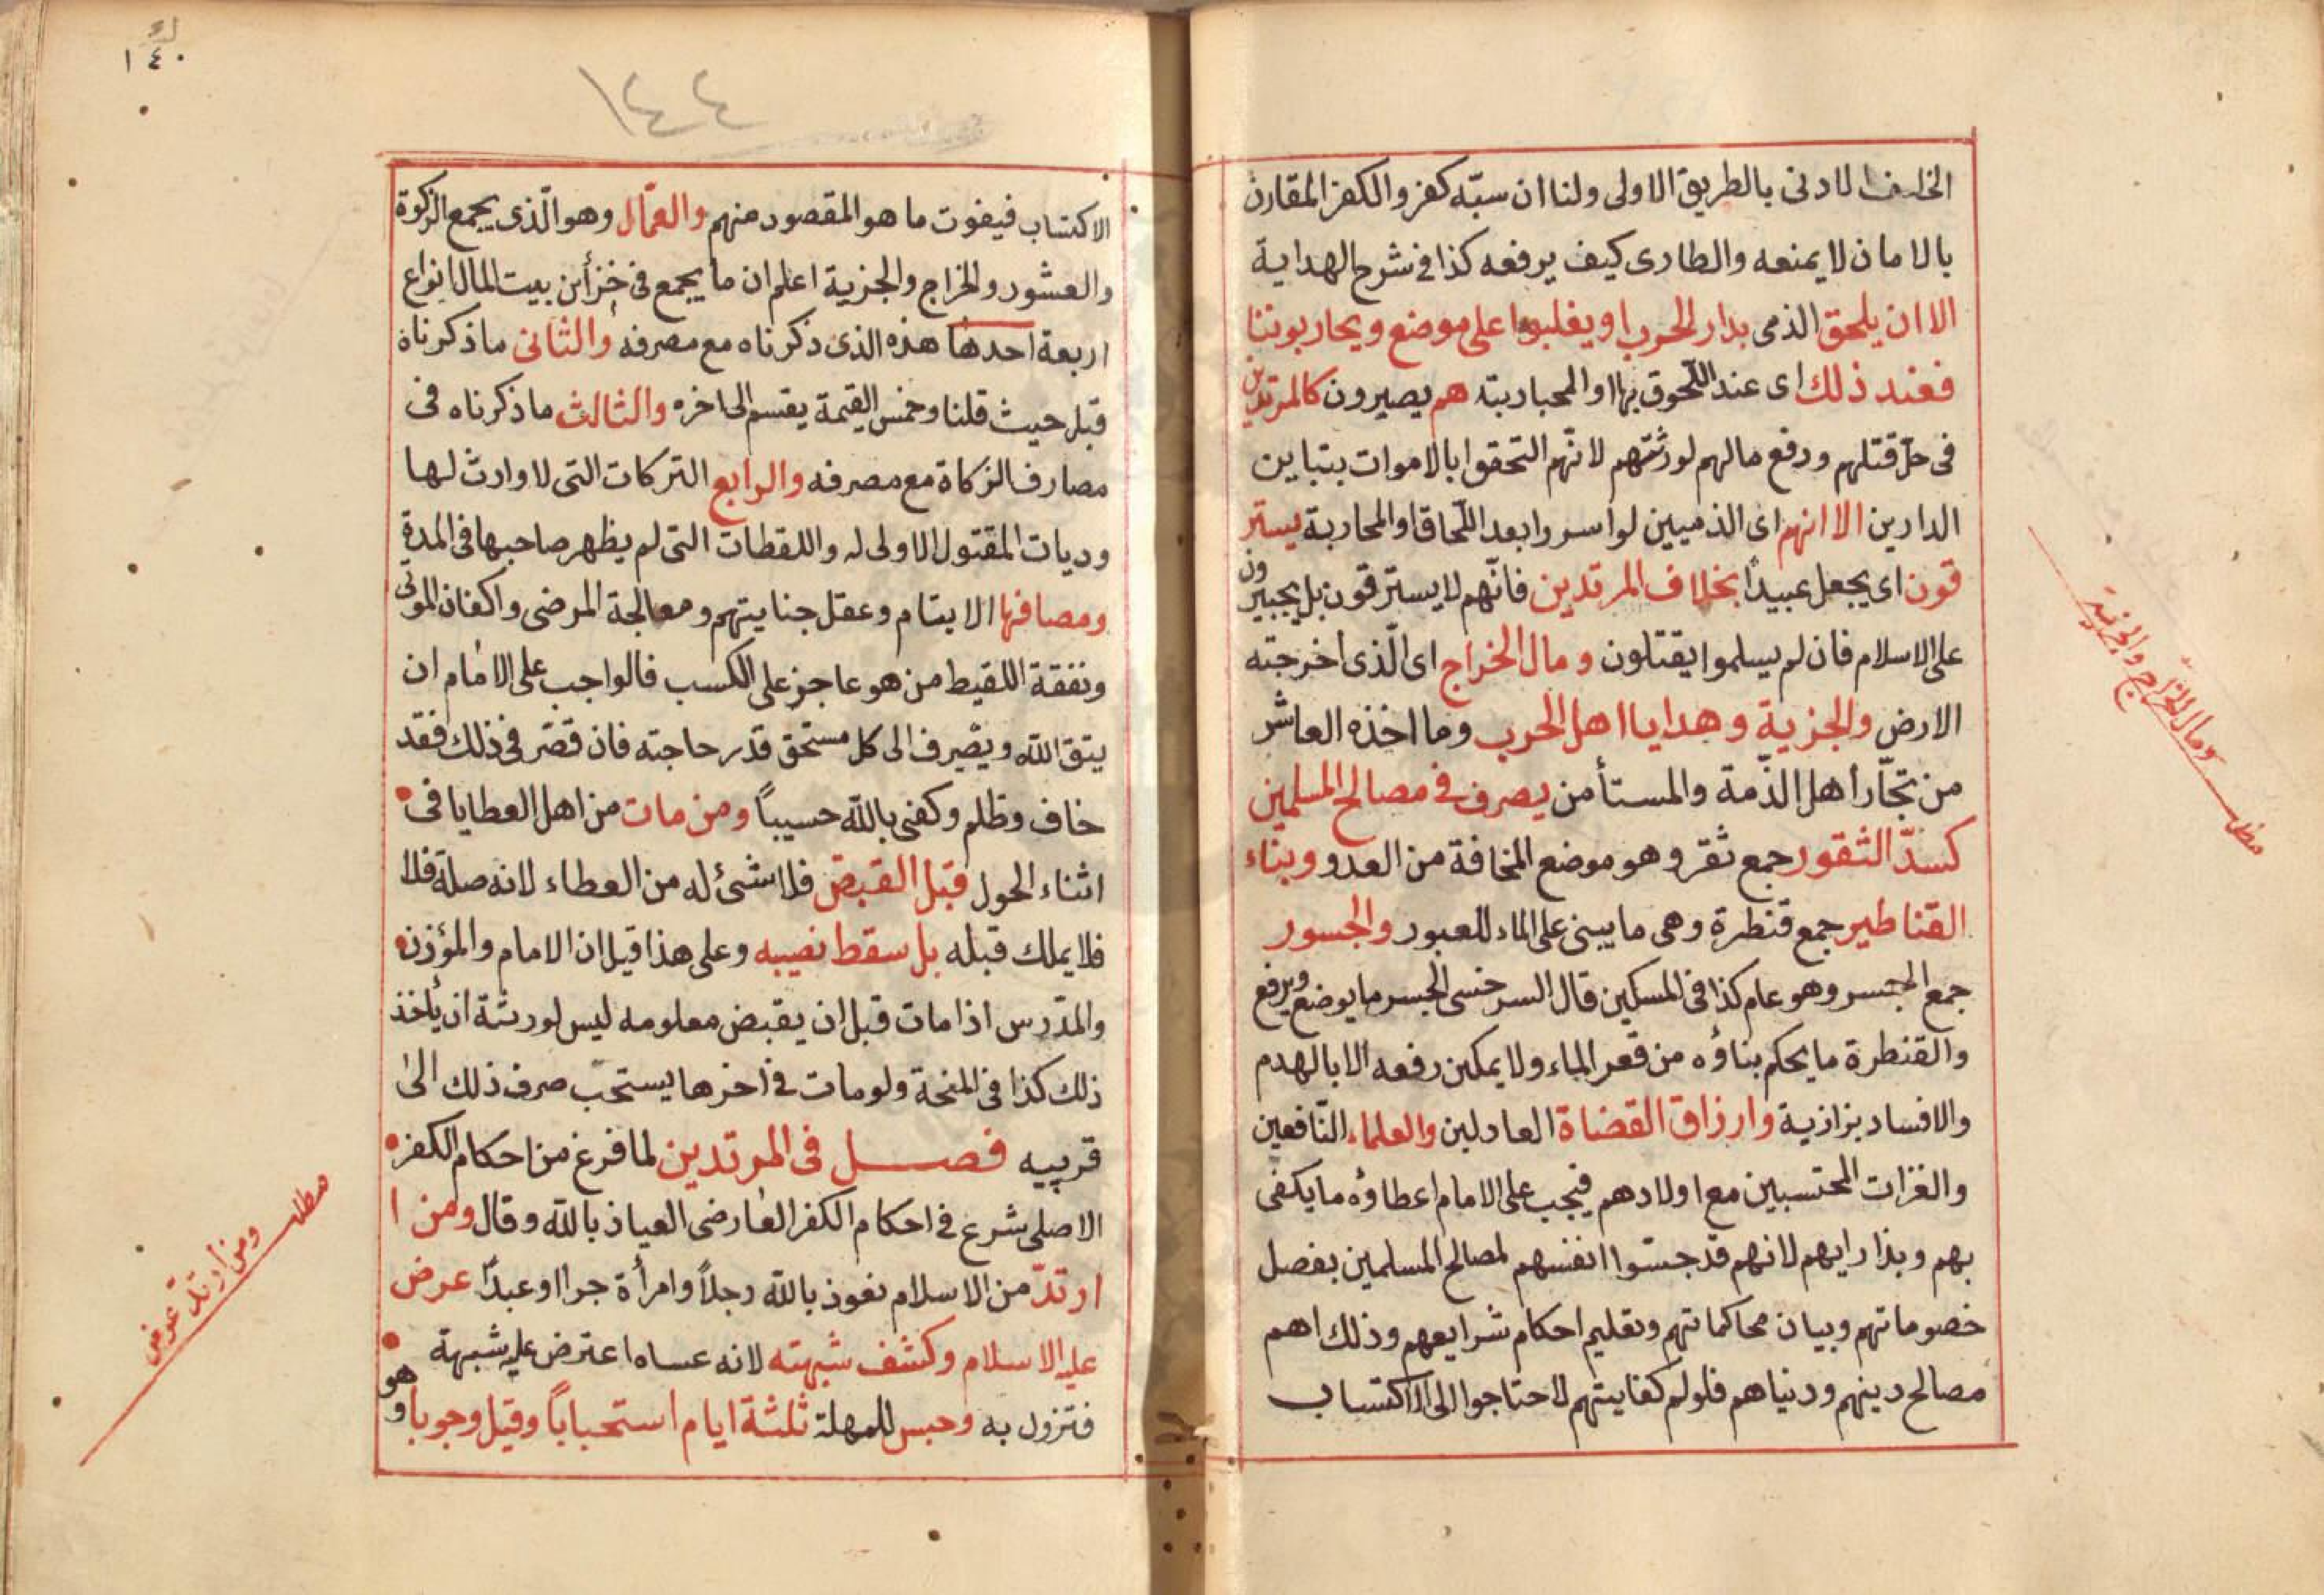 الخلف لادنى بالطريق الاولى ولنا ان سبّه كفر والكفر المقارن
بالامان لا يمنعه والطارى كيف يرفعه كذا فى شرح الهداية
الا ان يلحق الذمى بدار الحرب او يغلبوا على موضع ويحاربوننا
فعند ذلك اى عند اللّحوق بها او المحاربة هم يصيرون كالمرتدين
فى حلّ قتلهم ودفع مالهم لورثتهم لانّهم التحقوا بالاموات بتباين
الدارين الا انهم اى الذميين لو اسروا بعد اللّحاق او المحاربة يستر
قون اى يجعل عبيدًا بخلاف المرتدين فانّهم لا يسترقون بل يجبرون
على الاسلام فان لم يسلموا يقتلون ومال الخراج اى الّذى اخرجته
الارض والجزية وهدايا اهل الحرب وما اخذه العاشر
من تجّار أهل الذّمة والمستأمن يصرف فى مصالح المسلمين
كسدّ الثقور جمع ثقر وهو موضع المخافة من العدو وبناء
القناطير جمع قنطرة وهى ما يبنى على الماء للعبور والجسور
جمع الجسر وهو عام كذا فى المسكين قال السرخسى الجسر ما يوضع ويرفع
والقنطرة ما يحكم بناؤه من قعر الماء ولا يمكن رفعه الا بالهدم
والافساد بزازية وارزاق القضاة العادلين والعلماء النّافعين
والغزات المحتسبين مع اولادهم فيجب على الامام اعطاؤه ما يكفى
بهم وبذراريهم لانهم قد حبسوا انفسهم لمصالح المسلمين بفصل
خصوماتهم وبيان محاكماتهم وتعليم احكام شرايعهم وذلك اهم
مصالح دينهم ودنياهم فلو لم كفايتهم لاحتاجوا الى الاكتساب
ومال الخراج والجزية
مطلب
١٤٠
١٤٤
الاكتساب فيفوت ما هو المقصود منهم والعمّال وهو الّذى يجمع الزكوة
والعشور والخراج والجزية اعلم ان ما يجمع فى خزأين بيت المال انواع
اربعة احدها هذه الذى ذكرناه مع مصرفه والثانى ما ذكرناه
قبل حيث قلنا وخمس القيمة يقسم الى اخره والثالث ما ذكرناه فى
مصارف الزكاة مع مصرفه والرابع التركات التى لا وارث لها
وديات المقتول الاولى له واللقطات التى لم يظهر صاحبها فى المدة
ومصافها الايتام وعقل جنايتهم ومعالجة المرضى واكفان الموتى
ونفقة اللقيط من هو عاجز على الكسب فالواجب على الامام ان
يتق الله ويصرف الى كل مستحق قدر حاجته فان قصّر فى ذلك فقد
خاف وظلم وكفى بالله حسيباً ومن مات من اهل العطايا فى
اثناء الحول قبل القبض فلا شئ له من العطاء لانه صلة فلا
فلا يملك قبله بل سقط نصيبه وعلى هذا قيل ان الامام والمؤذن
والمدّرس اذا مات قبل ان يقبض معلومه ليس لورثة ان يأخذ
ذلك كذا فى المنحة ولو مات فى أخرها يستحبّ صرف ذلك الى
قريبه فصل فى المرتدين لما فرغ من احكام الكفر
الاصلى شرع فى احكام الكفر العارضى العياذ بالله وقال ومن ا
ارتدّ من الاسلام نعوذ بالله رجلاً وامرأة حرا او عبدًا عرض
عليه الاسلام وكشف شبهته لانه عساه اعترض عليه شبهة
فتزول به وحبس للمهلة ثلثة ايام استحباباً وقيل وجوبا وهو
مطلب
ومن ارتد عرض